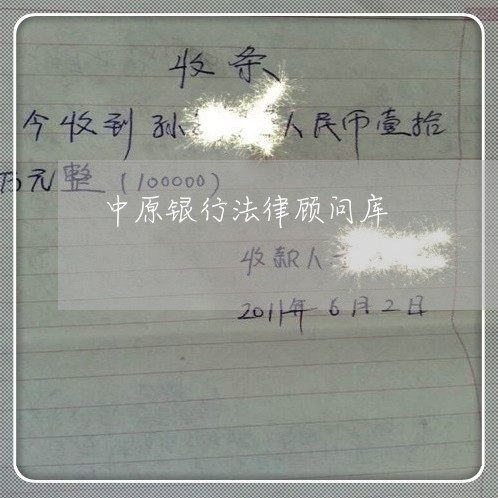 收条
今收到孙 人民币壹拾
万元整(100000)
中原银行法律顾问库
收款人
2011年6月2日